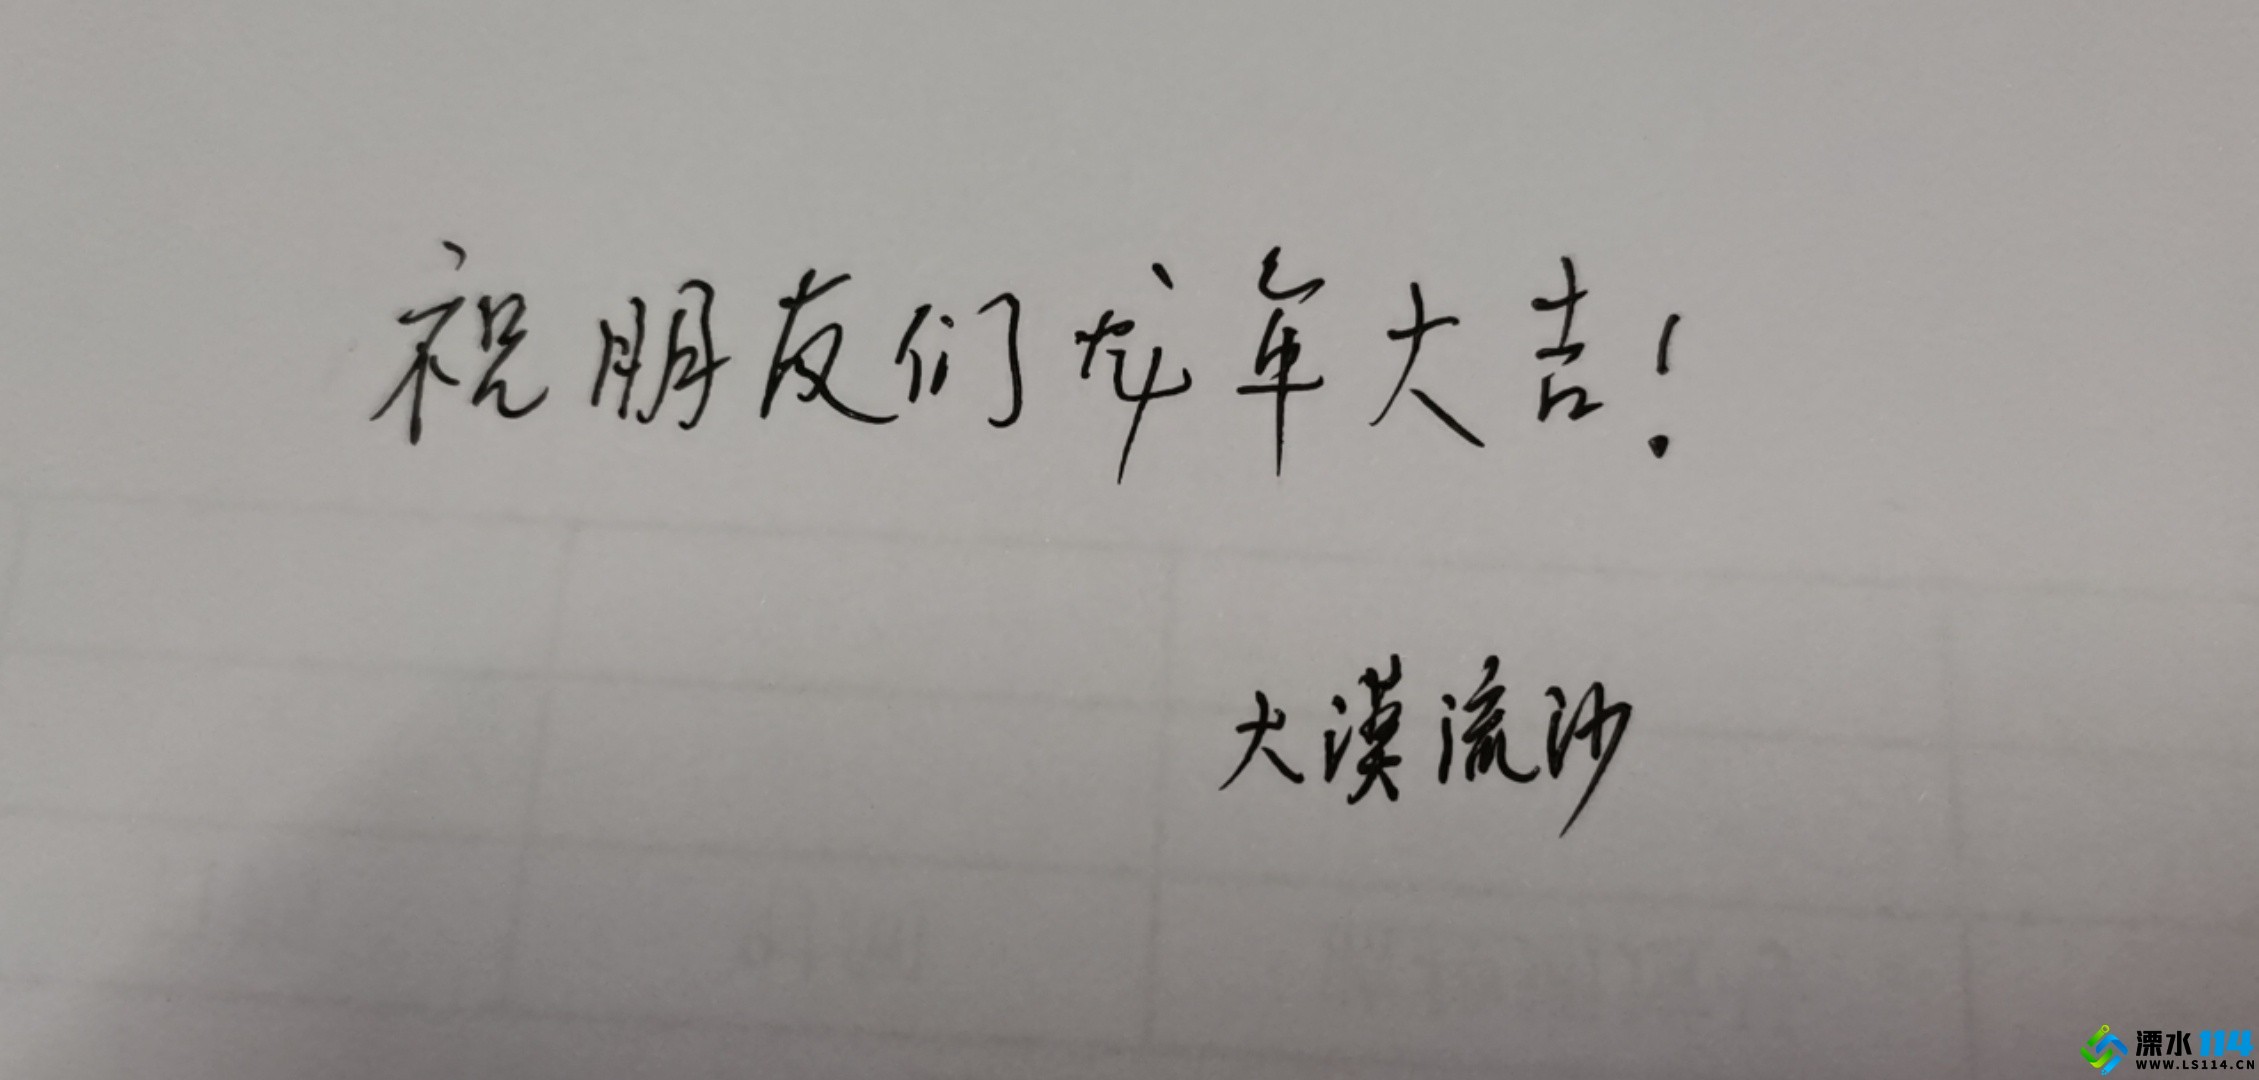 祝朋友们龙年大吉！
大漠流沙
溧水114
WWW.LS114.CN